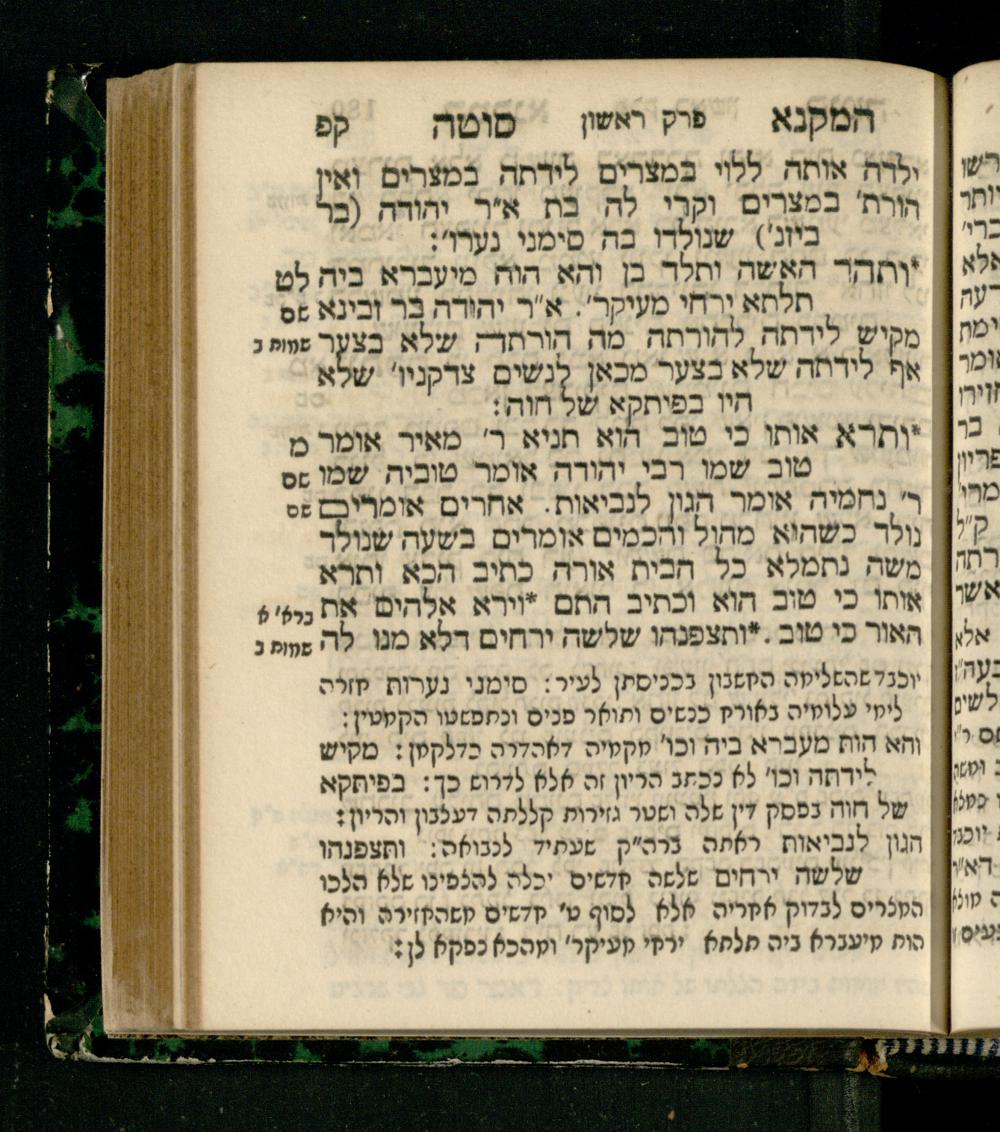 המקנא פרק ראשון סוטה קפ
ילדה אותה ללוי במצרים לידתה במצרים ואין
הורת' במצרים וקרי לה בת א"ר יהודה (בר
ביזנ') שנולדו בה סימני נערו':
*ותהר האשה ותלד בן והא הוה מיעברא ביה לט
תלתא ירחי מעיקר'. א"ר יהודה בר זבינא שם
מקיש לידתה להורתה מה הורתה שלא בצער שמות ב
אף לידתה שלא בצער מכאן לנשים צדקניו' שלא
היו בפיתקא של חוה:
*ותרא אותו כי טוב הוא תניא ר' מאיר אומר מ
טוב שמו רבי יהודה אומר טוביה שמו שם
ר' נחמיה אומר הגון לנביאות. אחרים אומרים שם
נולד כשהוא מהול והכמים אומרים בשעה שנולד
משה נתמלא כל הבית אורה כתיב הכא ותרא
אותו כי טוב הוא וכתיב התם *וירא אלהים את ברא' א
האור כי טוב. *ותצפנהו שלשה ירחים דלא מנו לה שמות ב
יוכבד שהשלימה החשבון בכניסתן לעיר: סימני נערות חזרה
לימי עלומיה באורח כנשים ותואר פנים ונתפשטו הקמטין:
והא הות מעברא ביה וכו' מקמיה דאהדרה כדלקמן: מקיש
לידתה וכו' לא נכתב הריון זה אלא לדרוש כך: בפיתקא
של חוה בפסק דין שלה ושטר גזירות קללתה דעצבון והריון:
הגון לנביאות ראתה ברה"ק שעתיד לנבואה: ותצפנהו
שלשה ירחים שלשה חדשים יכלה להצפינו שלא הלכו
המצרים לבדוק אחריה אלא לסוף ט' חדשים משהחזירה והיא
הות מיעברא ביה תלתא ירחי מעיקר' ומהכא נפקא לן: